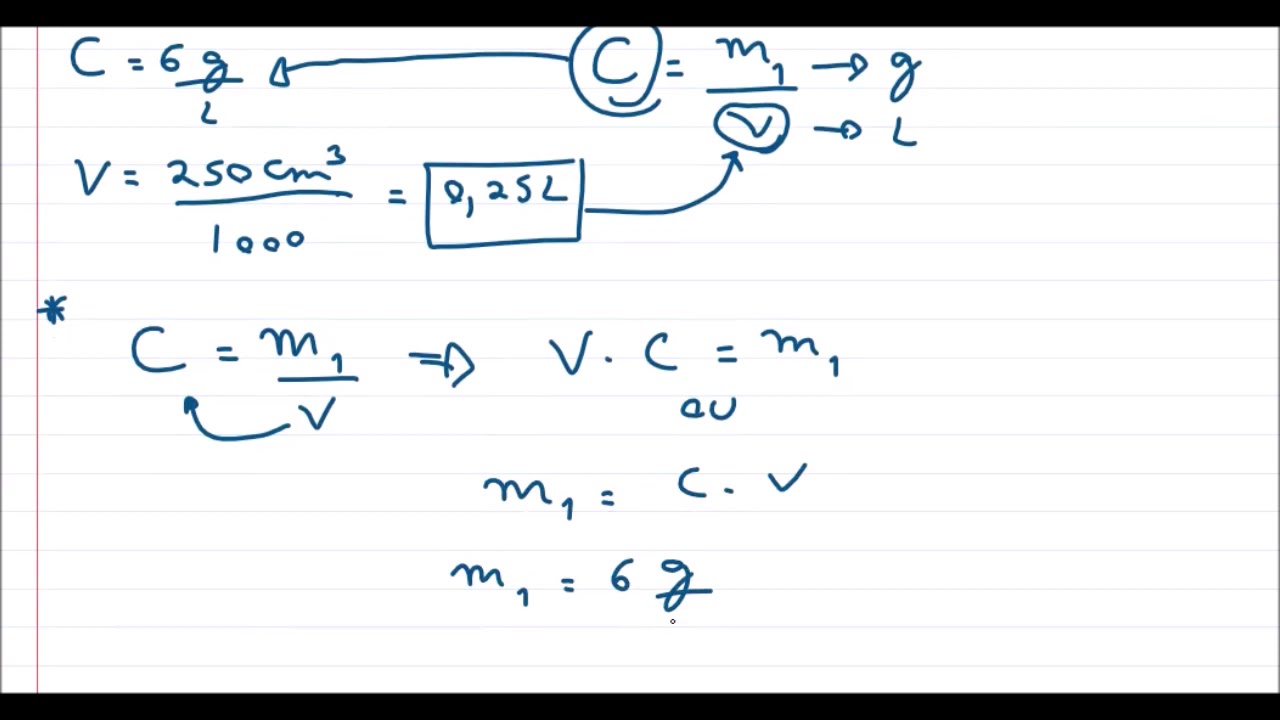 C = 6 g/L
C = m₁/V → g → L
V = 250 cm³/1000 = 0,25L
* C = m₁/V ⇒ V · C = m₁
ou
m₁ = C · V
m₁ = 6 g